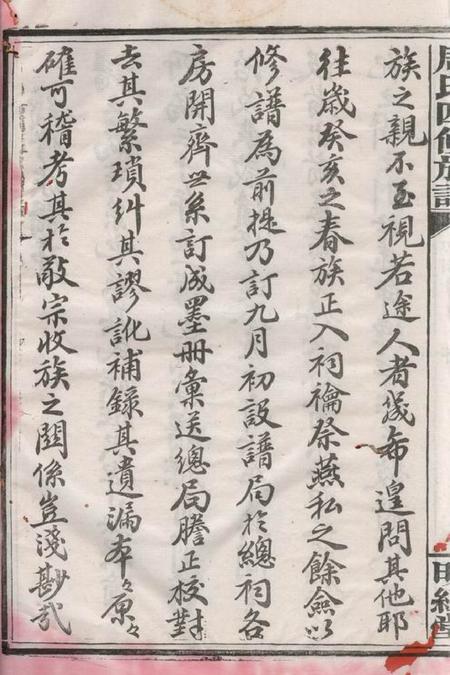 周氏四修族譜
明經堂
族之親不至視若途人者幾希遑問其他耶
往歲癸亥之春族正入祠禴祭燕私之餘僉以
修譜為前提乃訂九月初設譜局於總祠各
房開齊世系訂成墨册彙送總局謄正校對
去其繁瑣糾其謬訛補錄其遺漏本々原々
確可稽考其於敬宗收族之關係豈淺尠哉